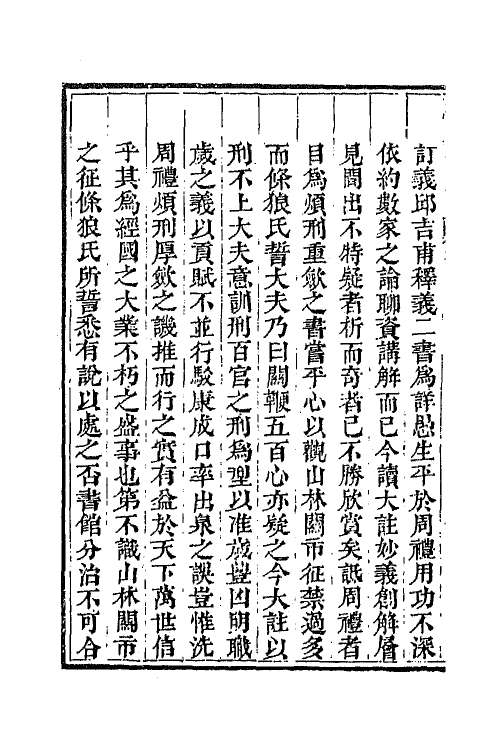 訂義邱吉甫釋義二書爲詳愚生平於周禮用功不深
依約數家之論聊資講解而已今讀大註妙義創解層
見間出不特疑者析而奇者已不勝欣賞矣詆周禮者
目爲煩刑重斂之書嘗平心以觀山林關市征禁過多
而條狼氏誓大夫乃曰關鞭五百心亦疑之今大註以
刑不上大夫意訓刑百官之刑爲型以准歲豈凶明職
歲之義以貢賦不並行駁康成口率出泉之誤豈惟洗
周禮煩刑厚斂之譏推而行之實有益於天下萬世信
乎其爲經國之大業不朽之盛事也第不識山林關市
之征條狼氏所誓悉有說以處之否書館分治不可合